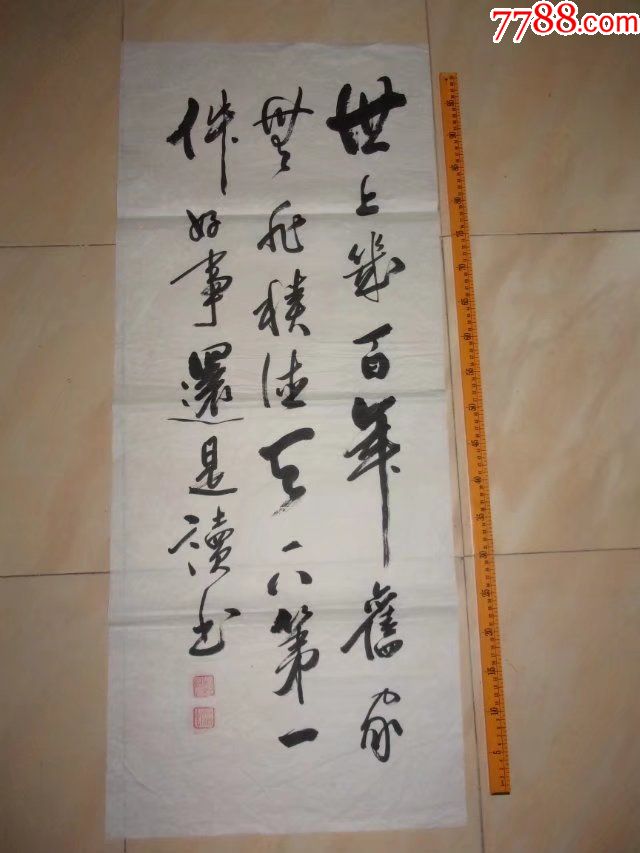 世上幾百年舊家
無非積德天下第一
件好事還是讀书
7788.com